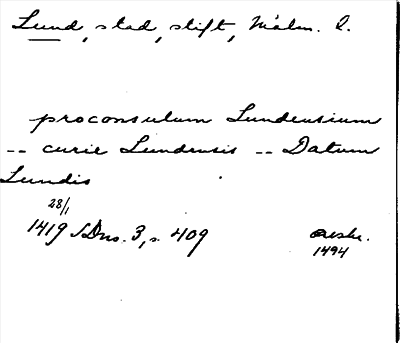 Lund, stad, stift, Malm. l.
proconsulum Lundensium
-- curie Lundensis -- Datum
Lundis
28/1
1419 SDns. 3, s. 409
avskr.
1494